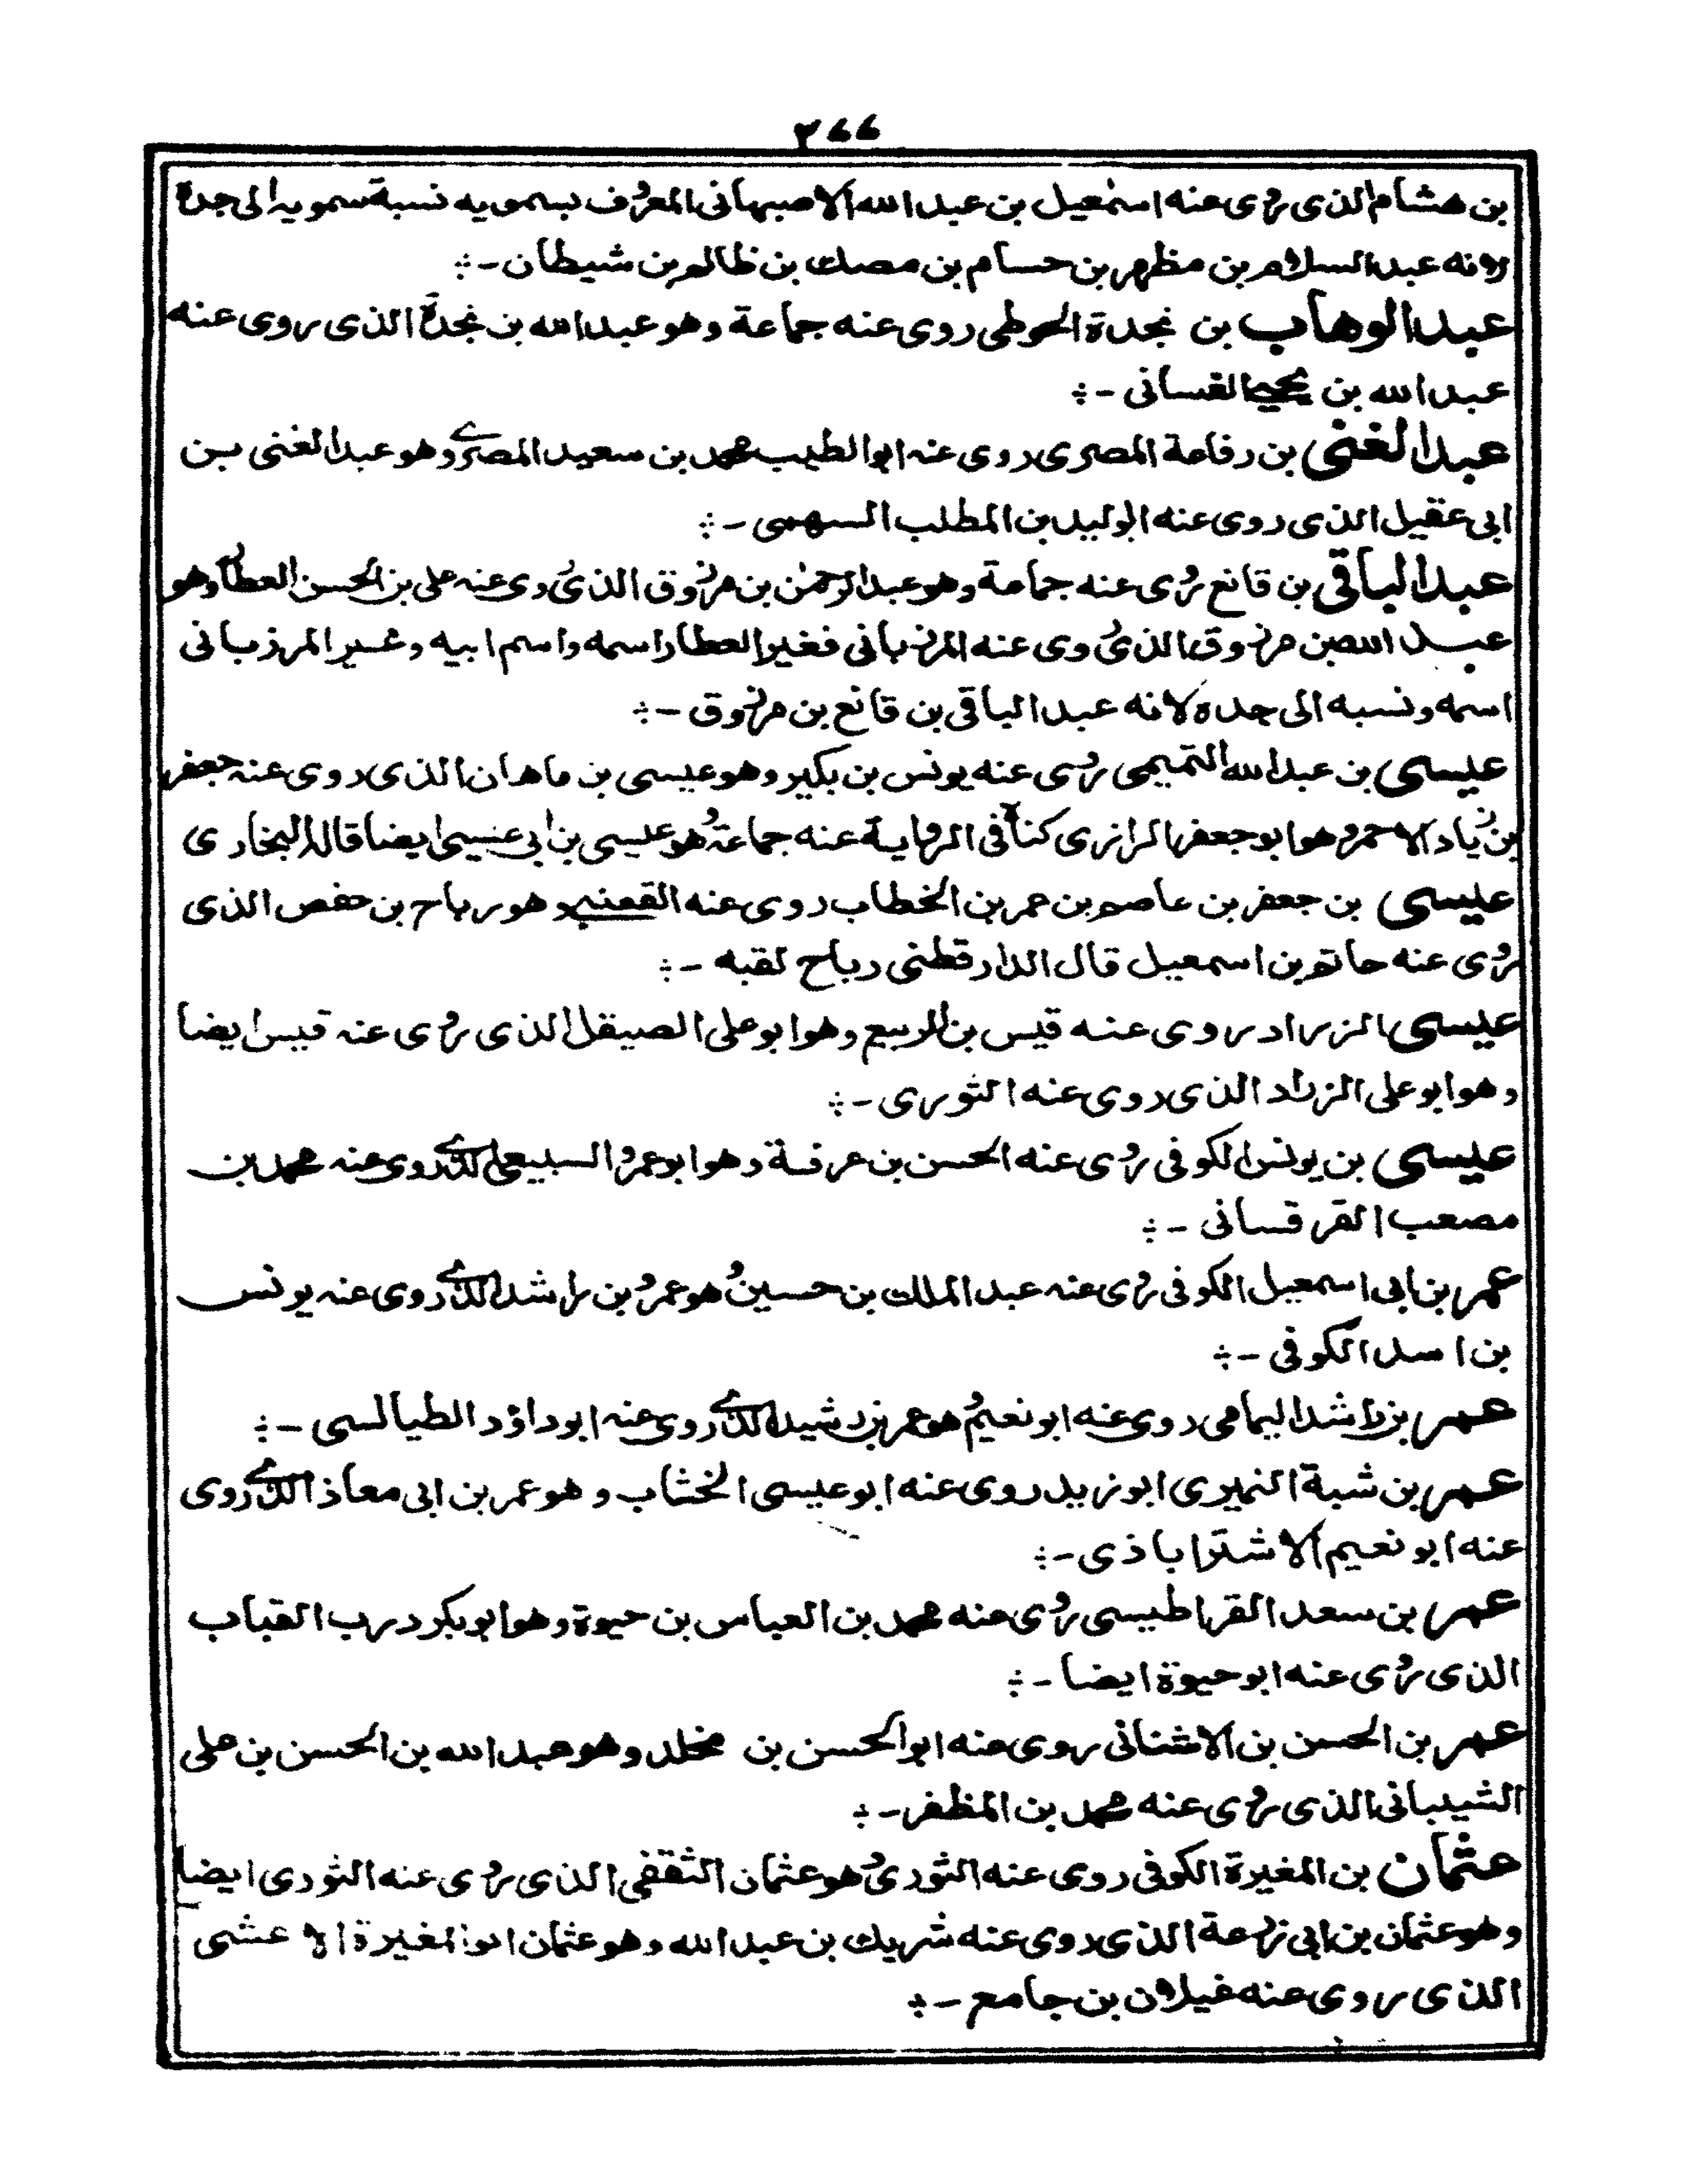 ٢٦٦
بن هشام الذى روى عنه اسمٰعيل بن عبدالله الاصبهانى المعروف بسمويه نسبة سمويه الى جدة
لانه عبدالسلام بن مظهر بن حسام بن مصك بن ظالم بن شيطان -
عبدالوهاب بن نجدة الحوطى روى عنه جماعة وهو عبدالله بن نجدة الذى روى عنه
عبدالله بن يحيى الغسانى -
عبدالغنى بن رفاعة المصرى روى عنه ابوالطيب محمد بن سعيد المصرى وهو عبدالغنى بن
ابى عقيل الذى روى عنه الوليد بن المطلب السهمى -
عبدالباقى بن قانع روى عنه جماعة وهو عبدالرحمٰن بن مرزوق الذى روى عنه على بن الحسن العطار وهو
عبدالله بن مرزوق الذى روى عنه المرزبانى فغير العطار اسمه واسم ابيه وغير المرزبانى
اسمه ونسبه الى جده لانه عبدالباقى بن قانع بن مرزوق -
عيسى بن عبدالله التميمى روى عنه يونس بن بكير وهو عيسى بن ماهان الذى روى عنه جعفر
بن زياد الاحمر وهو ابو جعفر الرازى كنا فى الرواية عنه جماعة وهو عيسى بن ابى عيسى ايضا قاله البخارى
عيسى بن جعفر بن عاصم بن عمر بن الخطاب روى عنه القعنبى وهو رباح بن حفص الذى
روى عنه حاتم بن اسمعيل قال الدارقطنى رباح لقبه -
عيسى الزراد روى عنه قيس بن الربيع وهو ابو على الصيقل الذى روى عنه قيس ايضا
وهو ابو على الزراد الذى روى عنه الثورى -
عيسى بن يونس الكوفى روى عنه الحسن بن عرفة وهو ابو عمرو السبيعى الذى روى عنه محمد بن
مصعب القرقسانى -
عمر بن ابى اسمعيل الكوفى روى عنه عبدالملك بن حسين وهو عمرو بن راشد الذى روى عنه يونس
بن اسد الكوفى -
عمر بن راشد اليمامى روى عنه ابونعيم وهو عمر بن رشيد الذى روى عنه ابوداؤد الطيالسى -
عمر بن شبة النميرى ابو زيد روى عنه ابوعيسى الخشاب وهو عمر بن ابى معاذ الذى روى
عنه ابو نعيم الاشتراباذى -
عمر بن سعد القراطيسى روى عنه محمد بن العباس بن حيوة وهو ابوبكر درب القباب
الذى روى عنه ابو حيوة ايضا -
عمر بن الحسن بن الاشنانى روى عنه ابوالحسن بن مخلد وهو عبدالله بن الحسن بن على
الشيبانى الذى روى عنه محمد بن المظفر -
عثمان بن المغيرة الكوفى روى عنه الثورى وهو عثمان الثقفى الذى روى عنه الثورى ايضا
وهو عثمان بن ابى زرعة الذى روى عنه شريك بن عبدالله وهو عثمان ابوالمغيرة الاعشى
الذى روى عنه غيلان بن جامع -